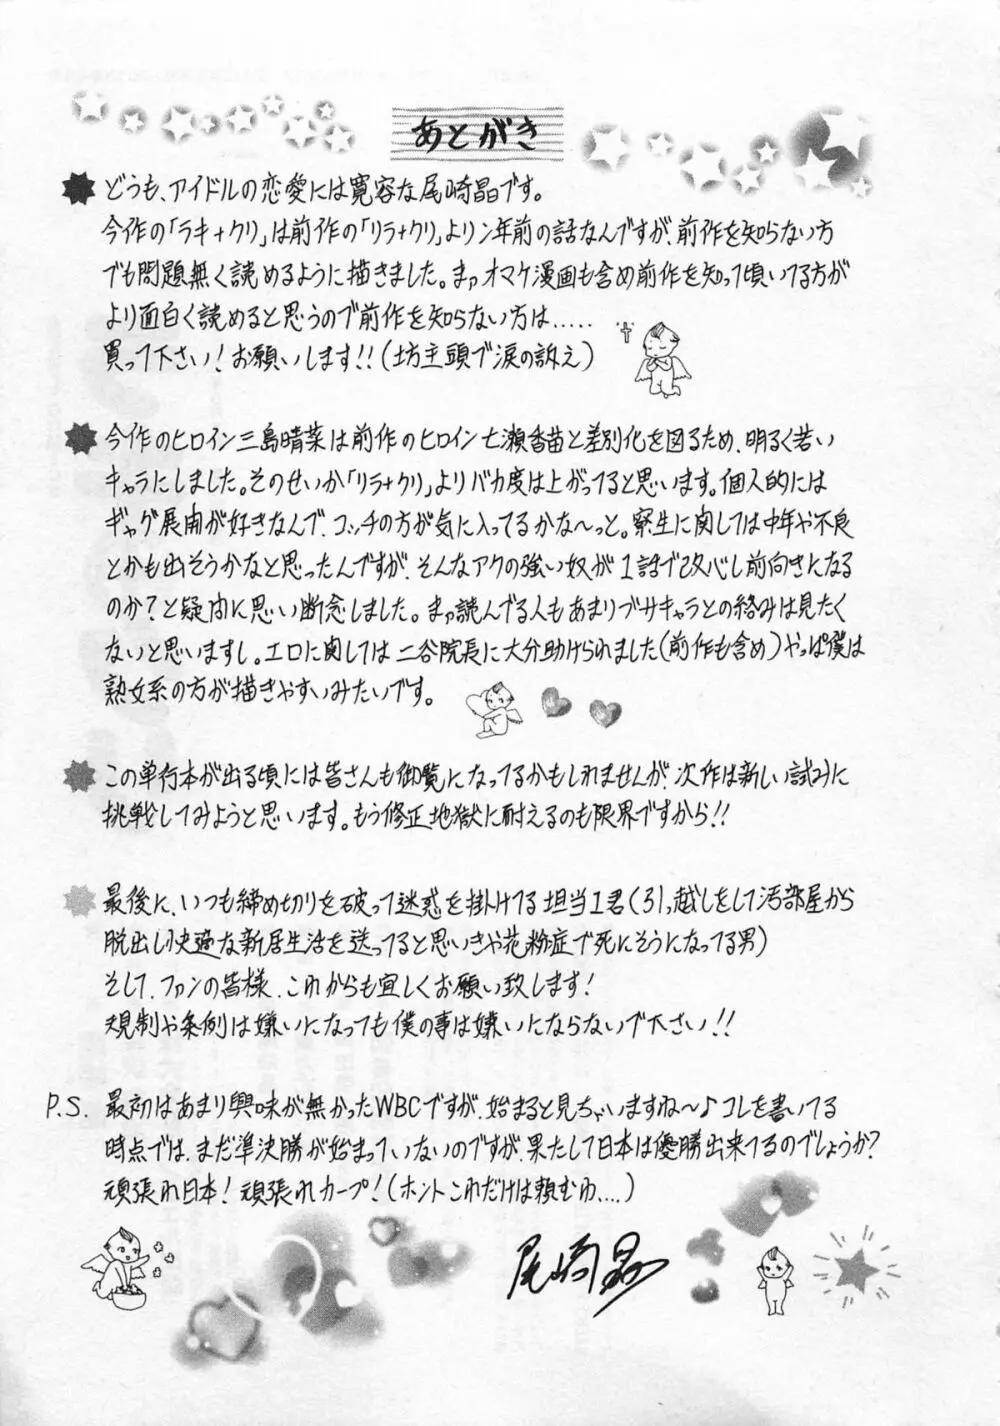 あとがき
どうも、アイドルの恋愛には寛容な尾崎晶です。
今作の「ラキ+クリ」は前作の「リラ+クリ」より2年前の話なんですが、前作を知らない方
でも問題無く読めるように描きました。まァオマケ漫画も含め前作を知って頂いてる方が
より面白く読めると思うので前作を知らない方は.....
買って下さい!お願いします!!(坊主頭で涙の訴え)
今作のヒロイン三島晴菜は前作のヒロイン七瀬香苗と差別化を図るため、明るく若い
キャラにしました。そのせいか「リラ+クリ」よりバカ度は上がってると思います。個人的には
ギャグ展開が好きなんで、コッチの方が気に入ってるかな〜っと。寮生に関しては中年や不良
とかも出そうかなと思ったんですが、そんなアクの強い奴が1話で改心し前向きになる
のか?と疑問に思い断念しました。まァ読んでる人もあまりブサキャラとの絡みは見たく
ないと思いますし。エロに関しては二谷院長に大分助けられました(前作も含め)やっぱ僕は
熟女系の方が描きやすいみたいです。
この単行本が出る頃には皆さんも御覧になってるかもしれませんが、次作は新しい試みに
挑戦してみようと思います。もう修正地獄に耐えるのも限界ですから!!
最後に、いつも締め切りを破って迷惑を掛けてる担当I君(引っ越しをして汚部屋から
脱出し快適な新居生活を送ってると思いきや花粉症で死にそうになってる男)
そして、ファンの皆様、これからも宜しくお願い致します!
規制や条例は嫌いになっても僕の事は嫌いにならないで下さい!!
P.S. 最初はあまり興味が無かったWBCですが、始まると見ちゃいますね〜♪コレを書いてる
時点では、まだ準決勝が始まっていないのですが、果たして日本は優勝出来てるのでしょうか?
頑張れ日本!頑張れカープ!(ホントこれだけは頼むわ....)
尾崎晶